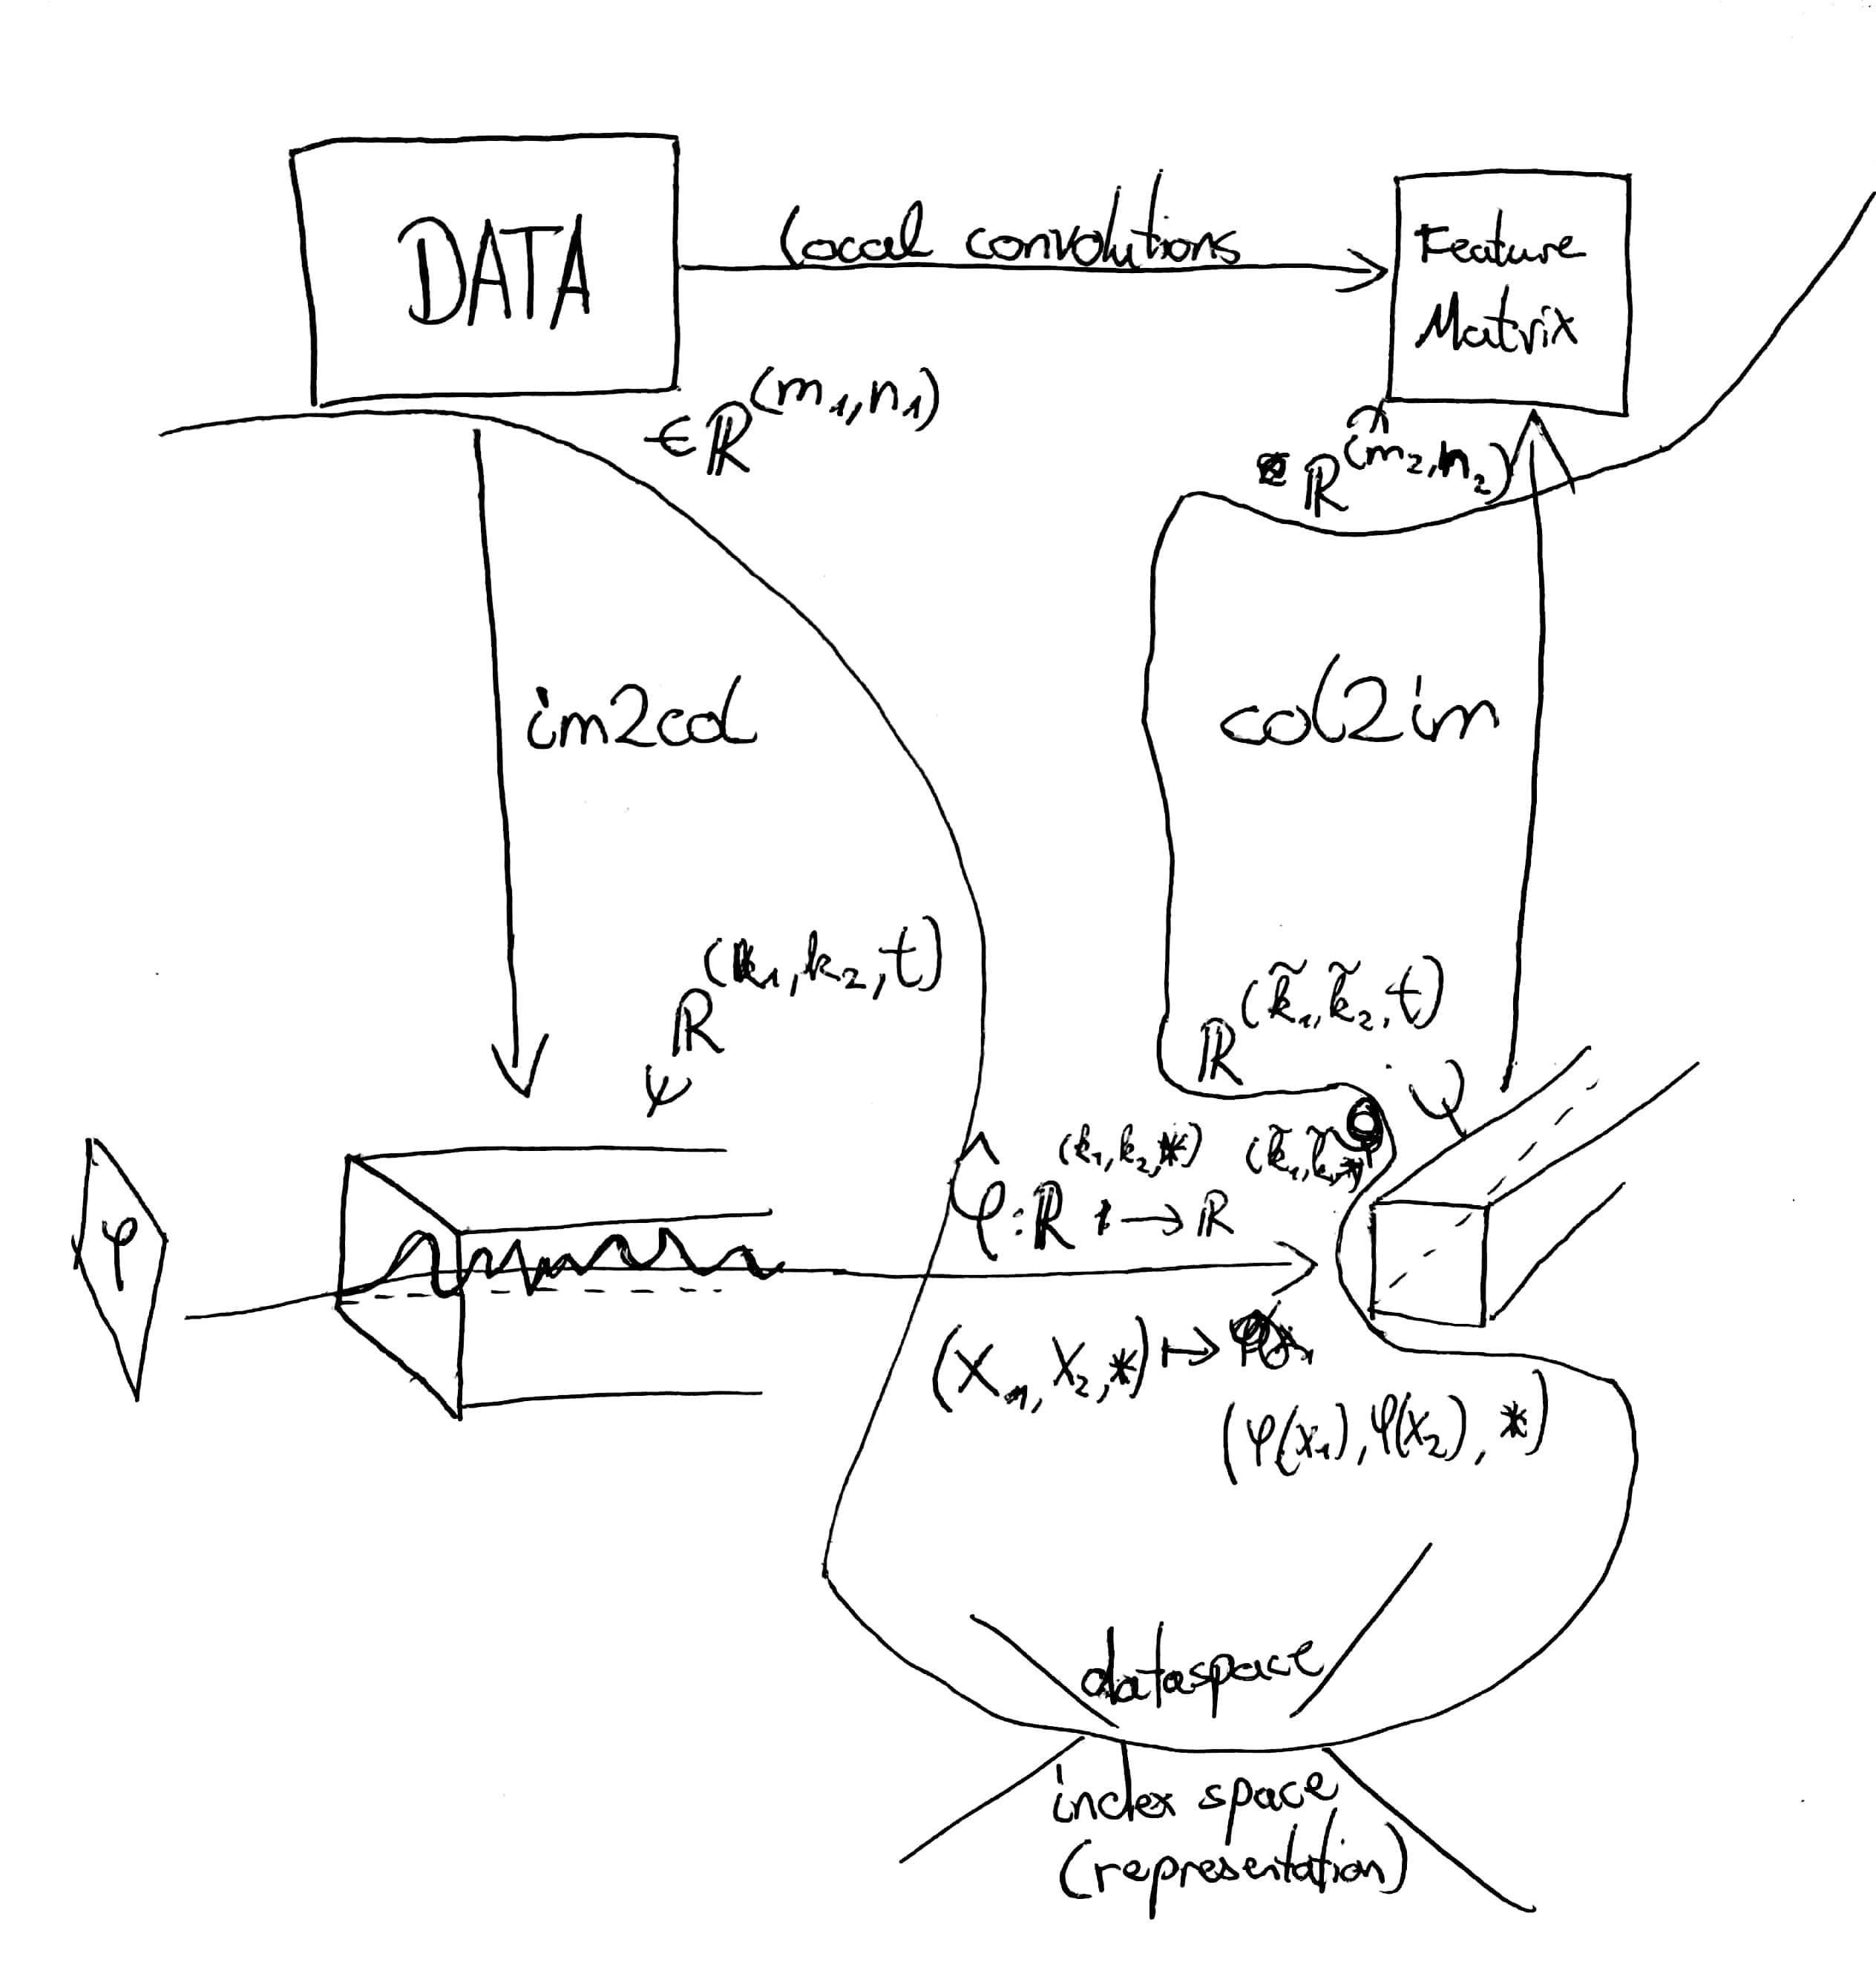 DATA
Local convolutions
Feature
Matrix
∈ℝ^(m₁,n₁)
ℝ^(m₂,n₂)
im2col
col2im
ℝ^(k₁,k₂,t)
ψ
ℝ^(k̃₁,k̃₂,t)
φ
φ̂:ℝ^(k₁,k₂,*) ⟼ ℝ
(x₁,x₂,*) ↦
(φ(x₁),φ(x₂),*)
dataspace
index space
(representation)